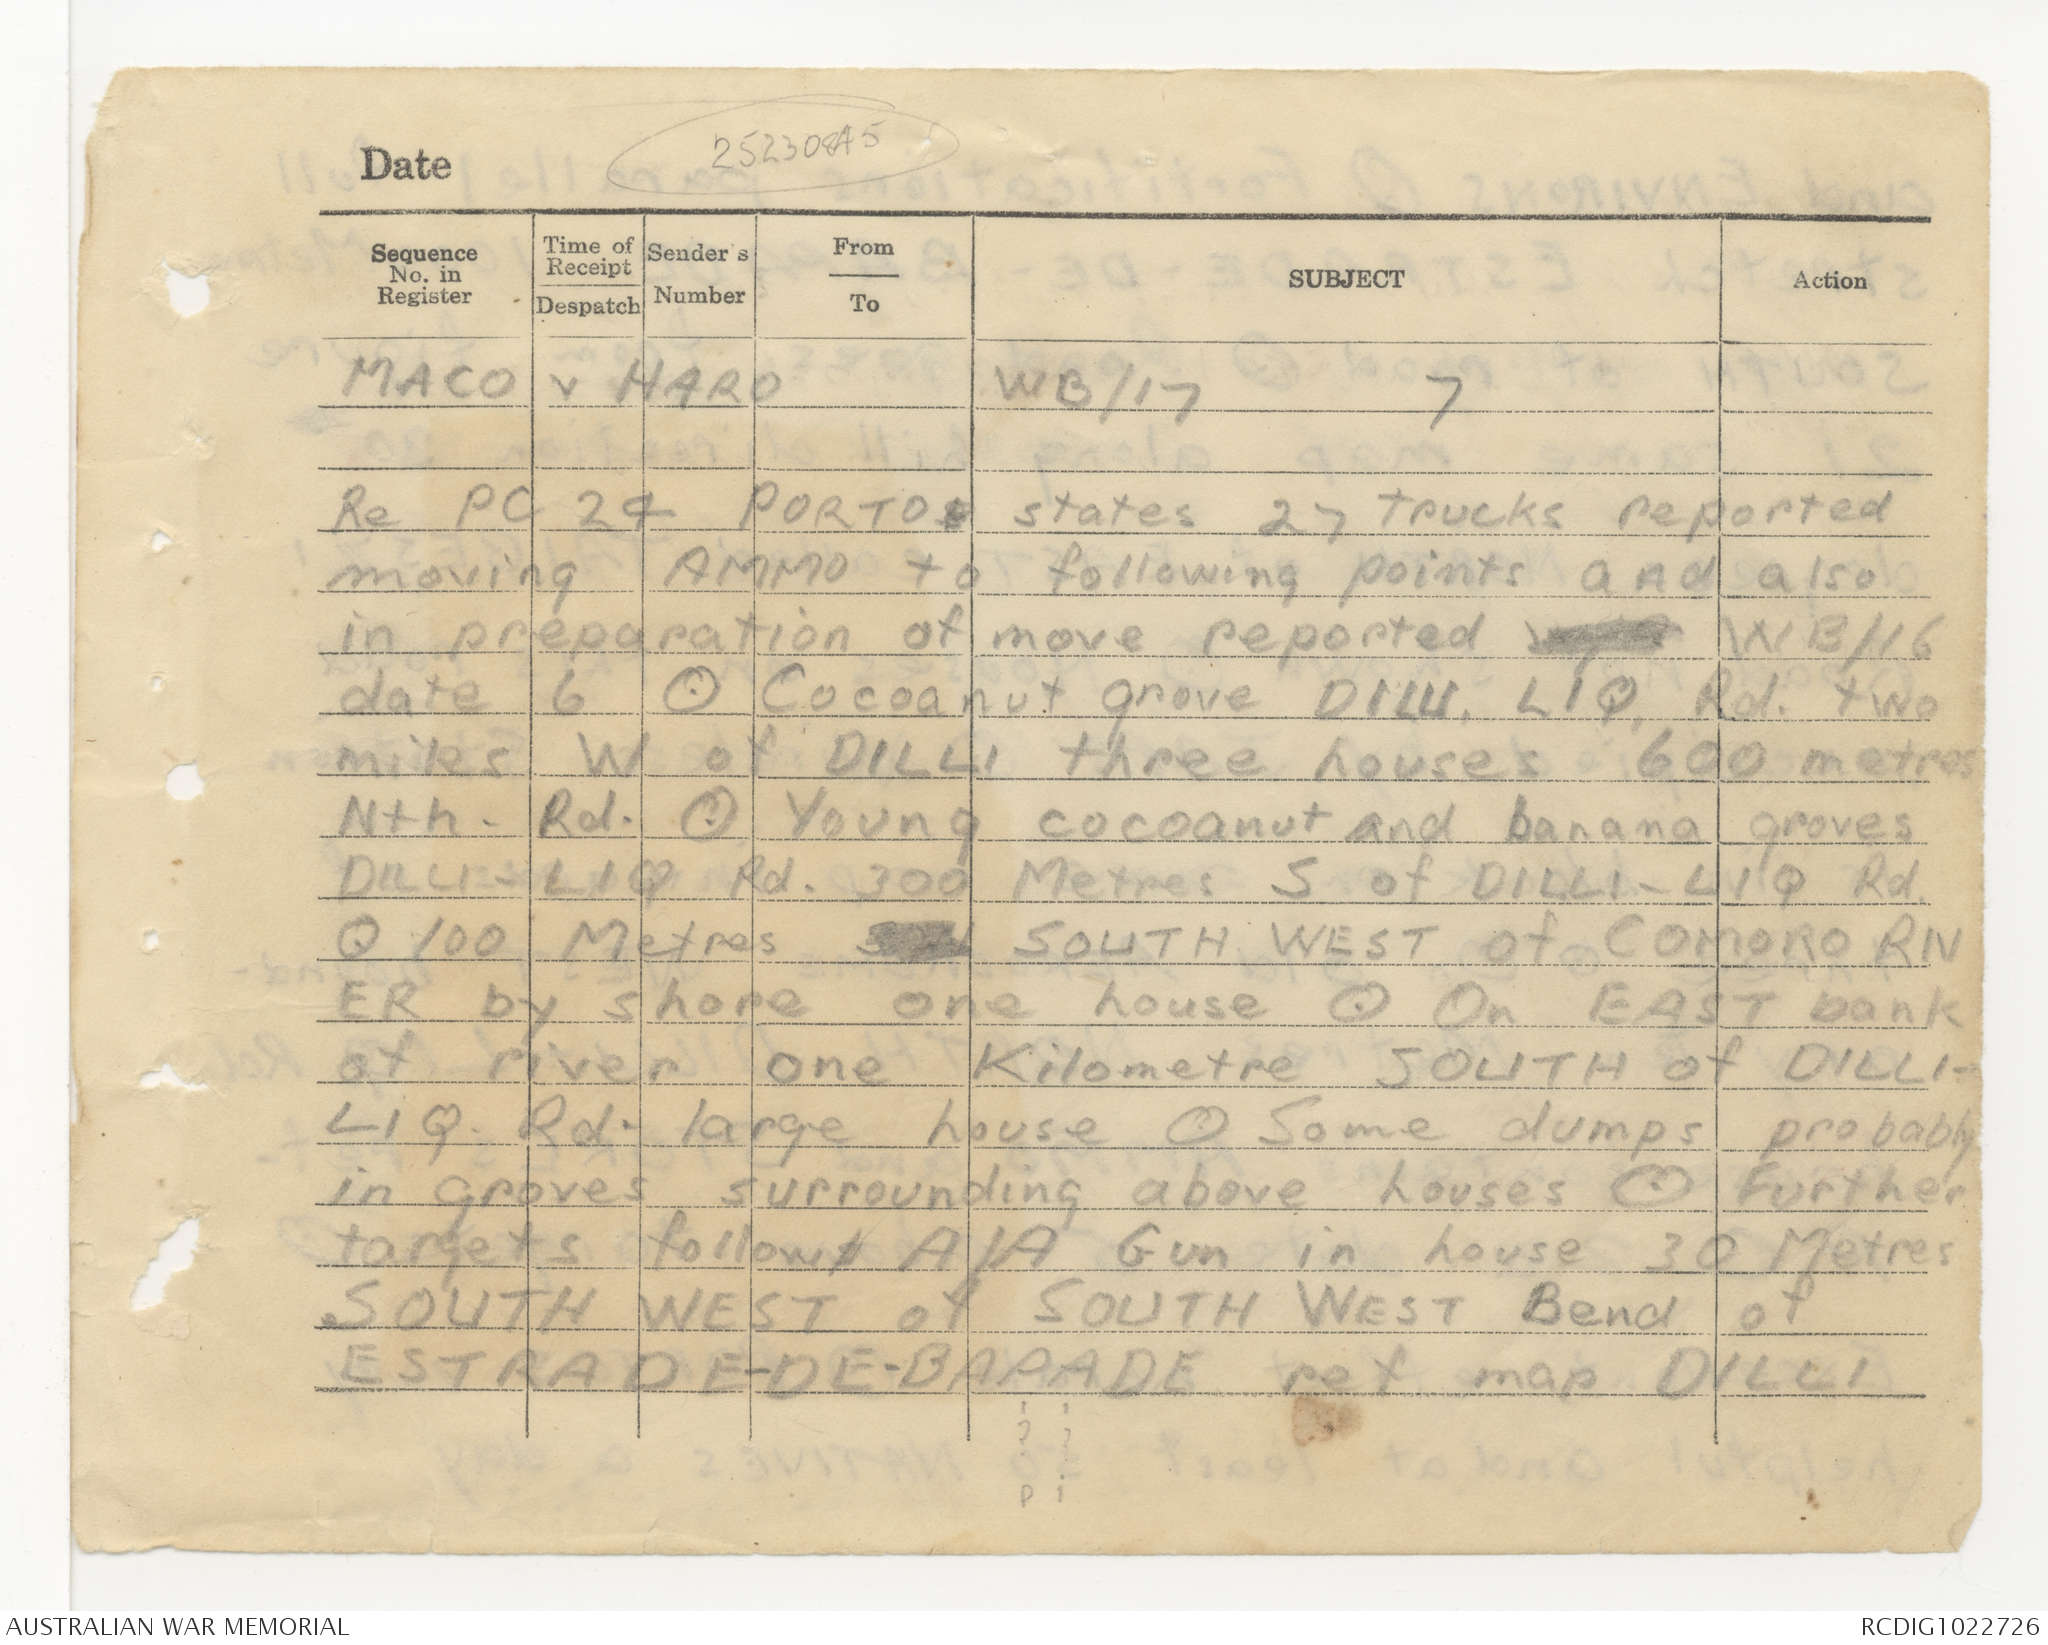 Date
Sequence No. in Register
Time of Receipt
Despatch
Sender's Number
From
To
SUBJECT
Action
MACO v HARO WB/17 7
Re PC 24 PORTO states 27 trucks reported
moving AMMO to following points and also
in preparation of move reported WB/16
date 6 ⊙ Cocoanut grove DILLI. LIQ. Rd. two
miles W of DILLI three houses 600 metres
Nth. Rd. ⊙ Young cocoanut and banana groves
DILLI-LIQ Rd. 300 Metres S of DILLI-LIQ Rd.
⊙ 100 Metres SOUTH WEST of COMORO RIV
ER by shore one house ⊙ On EAST bank
of river one Kilometre SOUTH of DILLI-
LIQ. Rd. large house ⊙ Some dumps probably
in groves surrounding above houses ⊙ Further
targets follow A/A Gun in house 30 Metres
SOUTH WEST of SOUTH WEST Bend of
ESTRADE-DE-BAPADE ref map DILLI
? ?
P i
AUSTRALIAN WAR MEMORIAL
RCDIG1022726